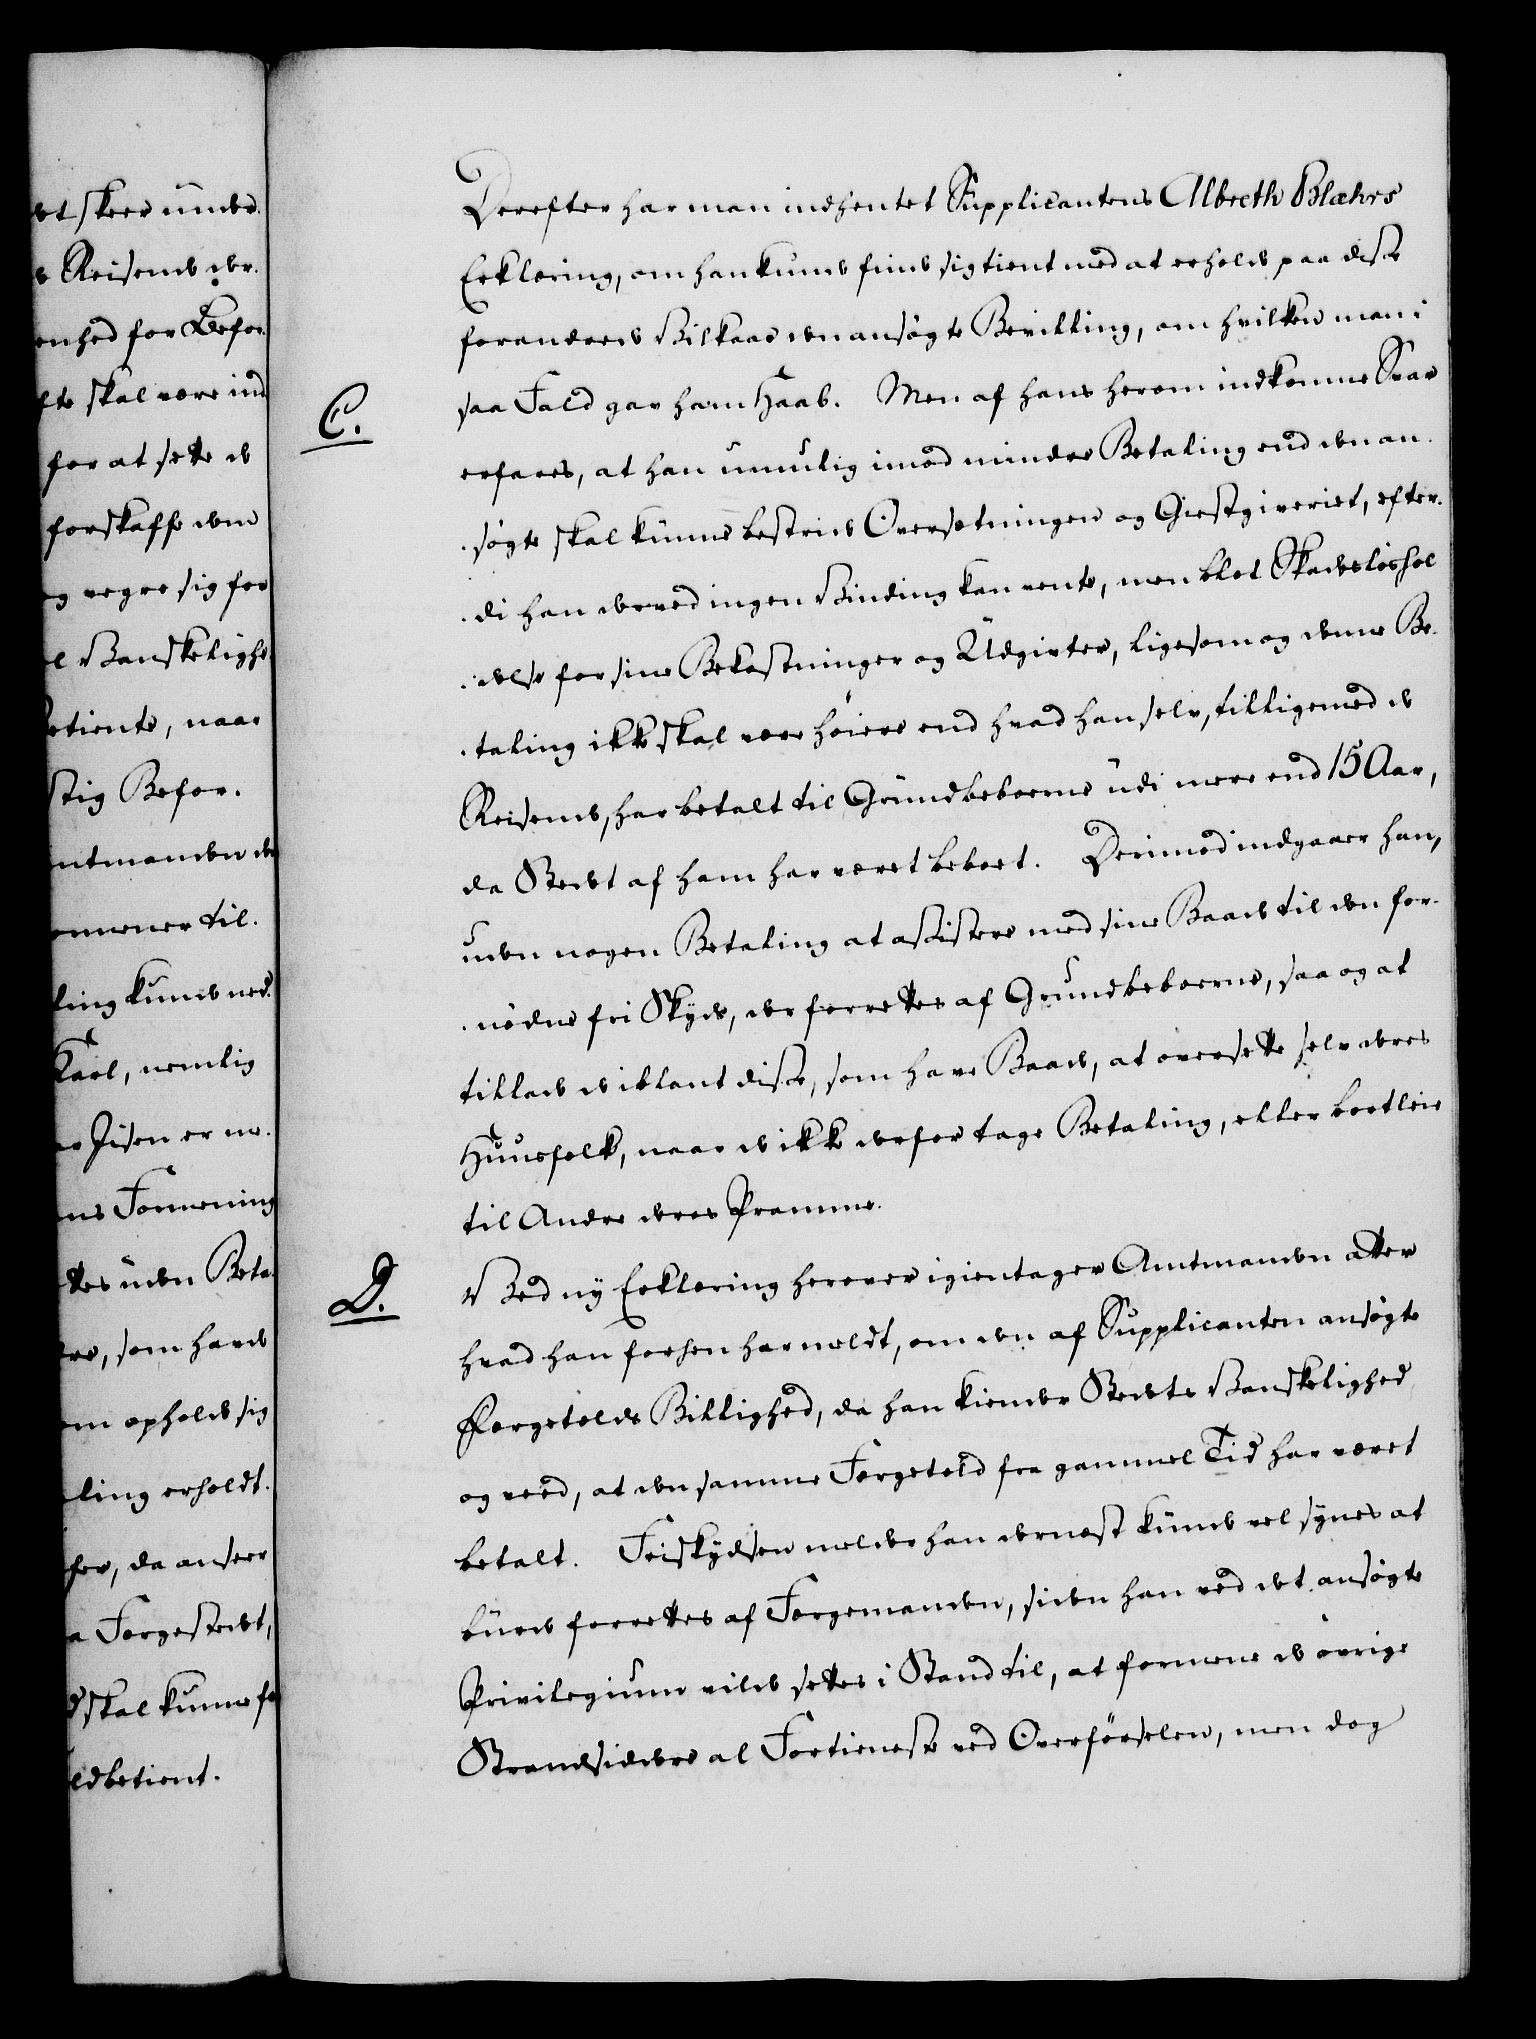 et skeer under
e Reisende der.
enhed for Befor.
lte skal være ind
for at sette de
forskaffe dem
og vegre sig for
el Vanskelighe
betiente, naar
stig Befor.
ntmanden de
ommener til.
ling kunde ned.
Karl, nemlig
er Jisen er ne.
ns Formening
ttes uden Beta
re, som havde
om opholde sig
ling erholdt.
fer, da anseer
a Færgestedet,
d skal kunne fo
ldbetient.
Derefter har man indhentet Supplicantens Albreth Blæhrs
Erklæring, om han kunde finde sig tient med at erholde paa disse
forandrede Vilkaar den ansøgte Bevilling, om hvilken man i
C.
saa Fald gav ham Haab. Men af hans herom indkomne Svar
erfares, at han umulig imod mindre Betaling end den an-
-søgte skal kunne bestride Oversætningen og Giestgiveriet, efter-
-di han derved ingen Vinding kan vente, men blot Skadesløshol
-delse for sine Bekostninger og Udgivter, ligesom og denne Be-
-taling ikke skal være høiere end hvad han selv, tilligemed de
Reisende, har betalt til Grundbeboerne udi mere end 15 Aar,
da Stedet af ham har været beboet. Derimod indgaaer han,
uden nogen Betaling at assistere med sine Baade til den for-
-nødne fri Skyds, der forrettes af Grundbeboerne, saa og at
tillade de iblant disse, som have Baade, at oversette selv deres
Huusfolk, naar de ikke derfor tage Betaling, eller bortleie
til Andre deres Pramme.
D.
Ved ny Erklæring herover igientager Amtmanden atter
hvad han forhen har meldt, om den af Supplicanten ansøgte
Færgetolds Billighed, da han kiender Stedets Vanskelighed
og veed, at den samme Færgetold fra gammel Tid har været
betalt. Friskydsen melder han dernæst kunde vel synes at
burde forrettes af Færgemanden, siden han ved det ansøgte
Privilegium vilde settes i Stand til, at formene de øvrige
Strandsiddere al Fortieneste ved Overførselen, men dog